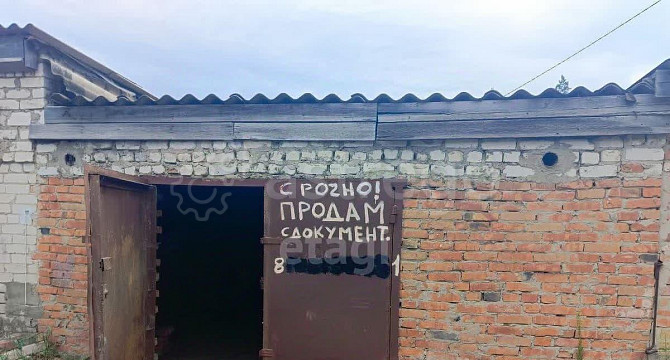 СРОZНО!
ПРОДАМ
СДОКУМЕНТ.
8 1
etagi